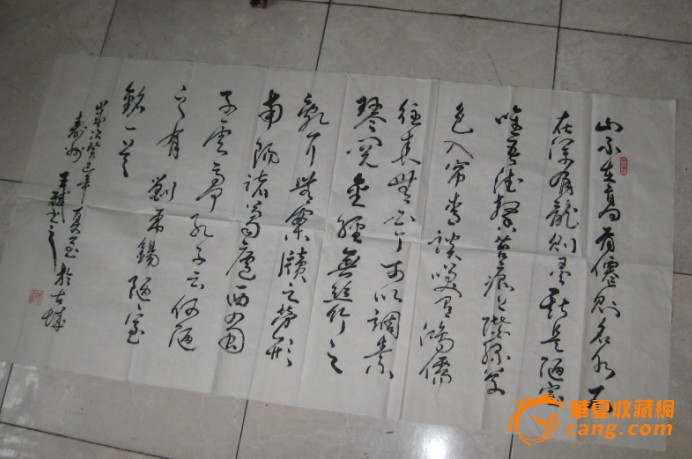 山不在高有僊則名水不
在深有龍則靈斯是陋室
唯吾德馨苔痕上階綠草
色入帘青談笑有鴻儒
往來無白丁可以調素
琴閱金經無絲竹之
亂耳無案牘之勞形
南陽諸葛廬西蜀
子雲亭孔子云何陋
之有劉禹錫陋室
銘一首
歲次癸巳年夏於古城
壽州王
華夏收藏網
cang.com